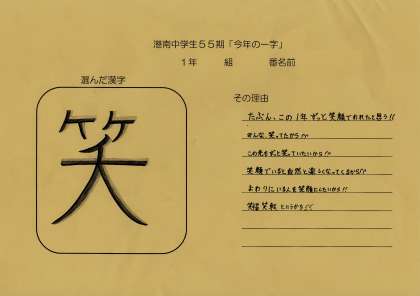 港南中学生55期「今年の一字」
1年　組　番名前
選んだ漢字
笑
その理由
たぶん、この1年ずっと笑顔でおれたと思う!!
みんな、笑ってたから
この先もずっと笑っていたいから
笑顔でいると自然と楽しくなってくるから
まわりにいる人を笑顔にしたいから!!